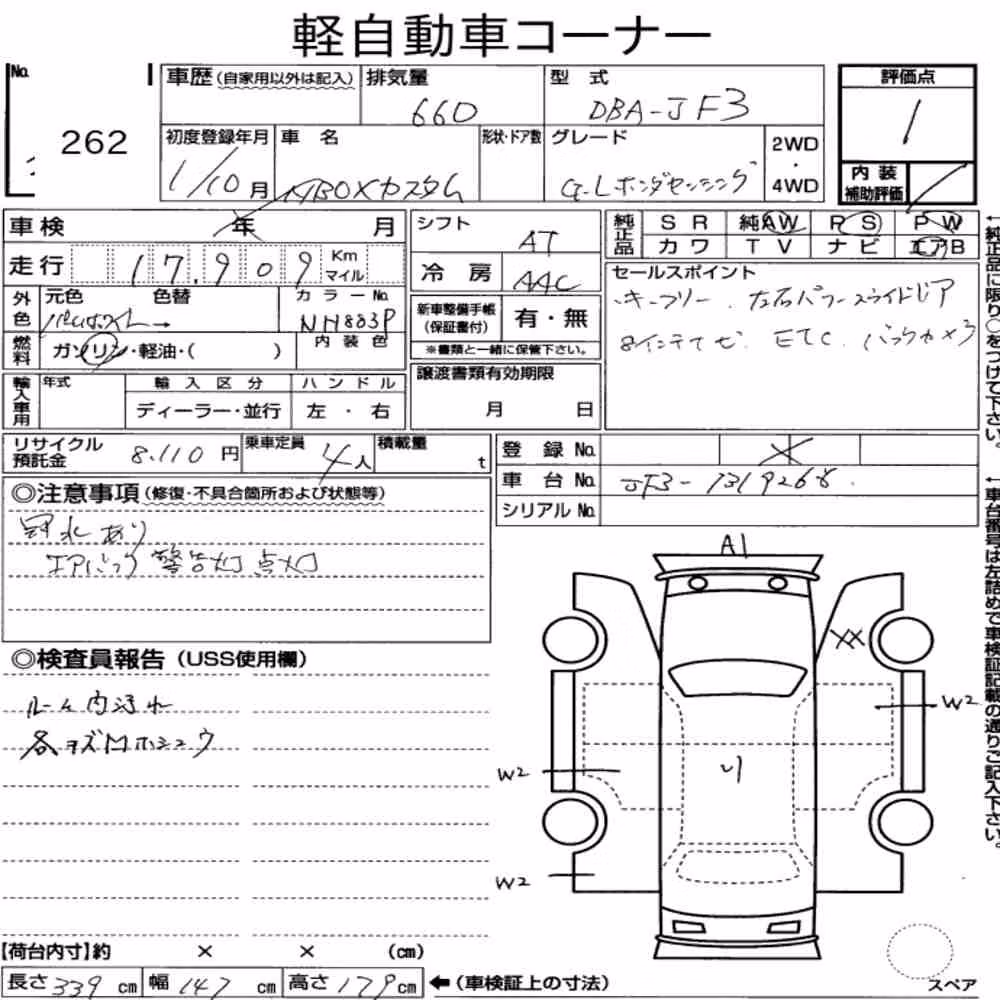 軽自動車コーナー
No. 262
車歴 (自家用以外は記入)
排気量 660
型式 DBA-JF3
評価点 1
初度登録年月 1/10月
車名 NBOXカスタム
形状・ドア数
グレード G-Lホンダセンシング
2WD・4WD
内装補助評価
車検 年 月
シフト AT
純正品 SR 純AW RS PW
カワ TV ナビ エアB
走行 17,909 Km マイル
冷房 AAC
セールスポイント
キーフリー 左右パワースライドドア
8インチナビ ETC バックカメラ
外色 元色 色替
カラーNo. NH883P
内装色
燃料 ガソリン・軽油・( )
新車整備手帳(保証書付) 有・無
※書類と一緒に保管下さい。
輸入車用 年式 輸入区分 ハンドル
ディーラー・並行 左・右
譲渡書類有効期限
月 日
リサイクル預託金 8,110円
乗車定員 4人
積載量 t
登録No.
車台No. JF3-1319268
シリアルNo.
◎注意事項 (修復・不具合箇所および状態等)
冠水あり
エアバック警告灯点灯
◎検査員報告 (USS使用欄)
ルーム内汚れ
各キズMホシュウ
A1
XX
W2
W2
W2
【荷台内寸】約 × × (cm)
長さ339cm 幅147cm 高さ179cm ←(車検証上の寸法)
スペア
←純正品に限り○をつけて下さい。
←車台番号は左詰めで車検証記載の通りご記入下さい。